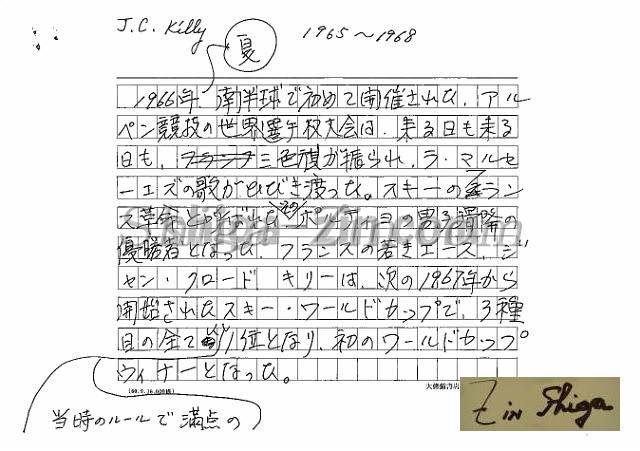 J.C. Killy 1965〜1968
夏
1966年、南半球で初めて開催された、アル
ペン競技の世界選手権大会は、来る日も来る
日も、フランス三色旗が振られ、ラ・マルセ
ーエズの歌がひびき渡った。スキーのフラン
ス革命とよばれたそのポルティヨの男子滑降の
優勝者となった、フランスの若きエース、ジ
ャン・クロード キリーは、次の1967年から
開始されたスキー・ワールドカップで、3種
目の全て 1位となり、初のワールドカップ
ウィナーとなった。
当時のルールで満点の
Z in Shiga